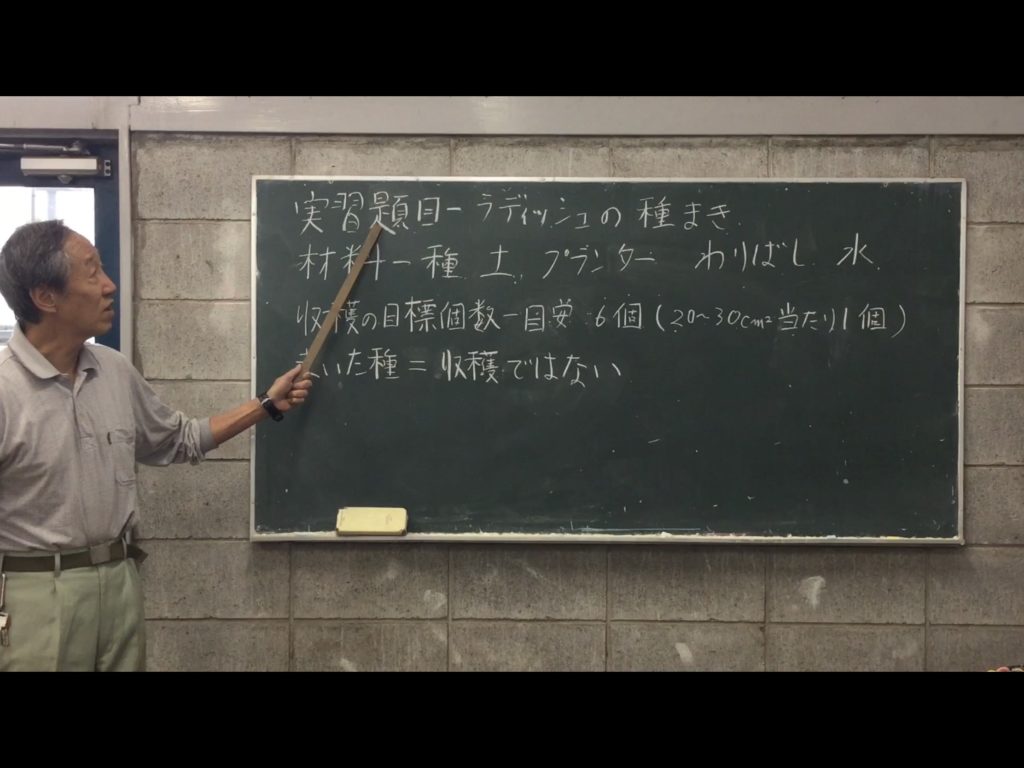 実習題目ーラディッシュの種まき
材料ー種 土 プランター わりばし 水
収穫の目標個数ー目安 6個(20〜30cm²当たり1個)
まいた種=収穫ではない